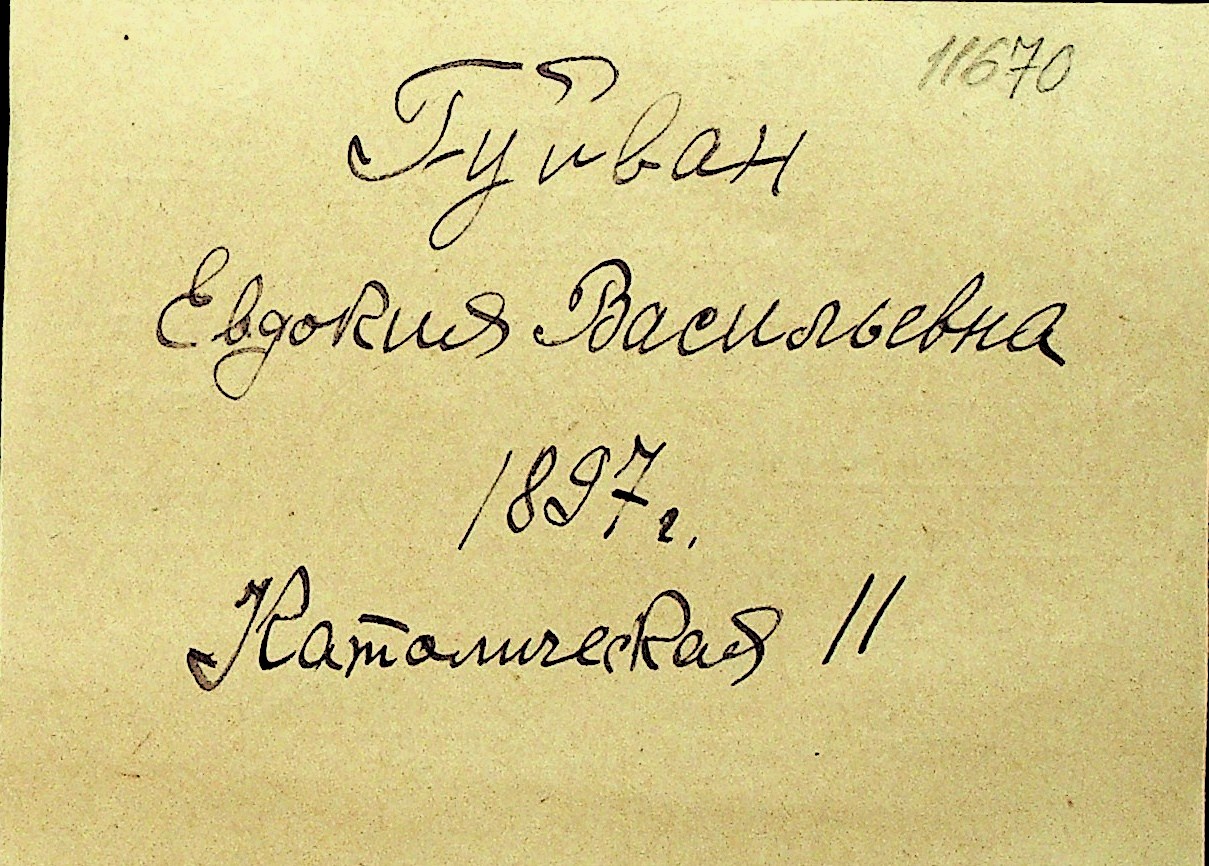 11670
Гуйван
Евдокия Васильевна
1897 г.
Католическая 11